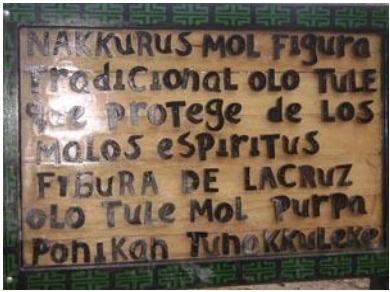 NAKKURUS MOL FIGURA
TRADICIONAL OLO TULE
QUE PROTEGE DE LOS
MALOS ESPIRITUS
FIGURA DE LACRUZ
OLO TULE MOL PURPA
PONIKAN TUNAKKULEKE